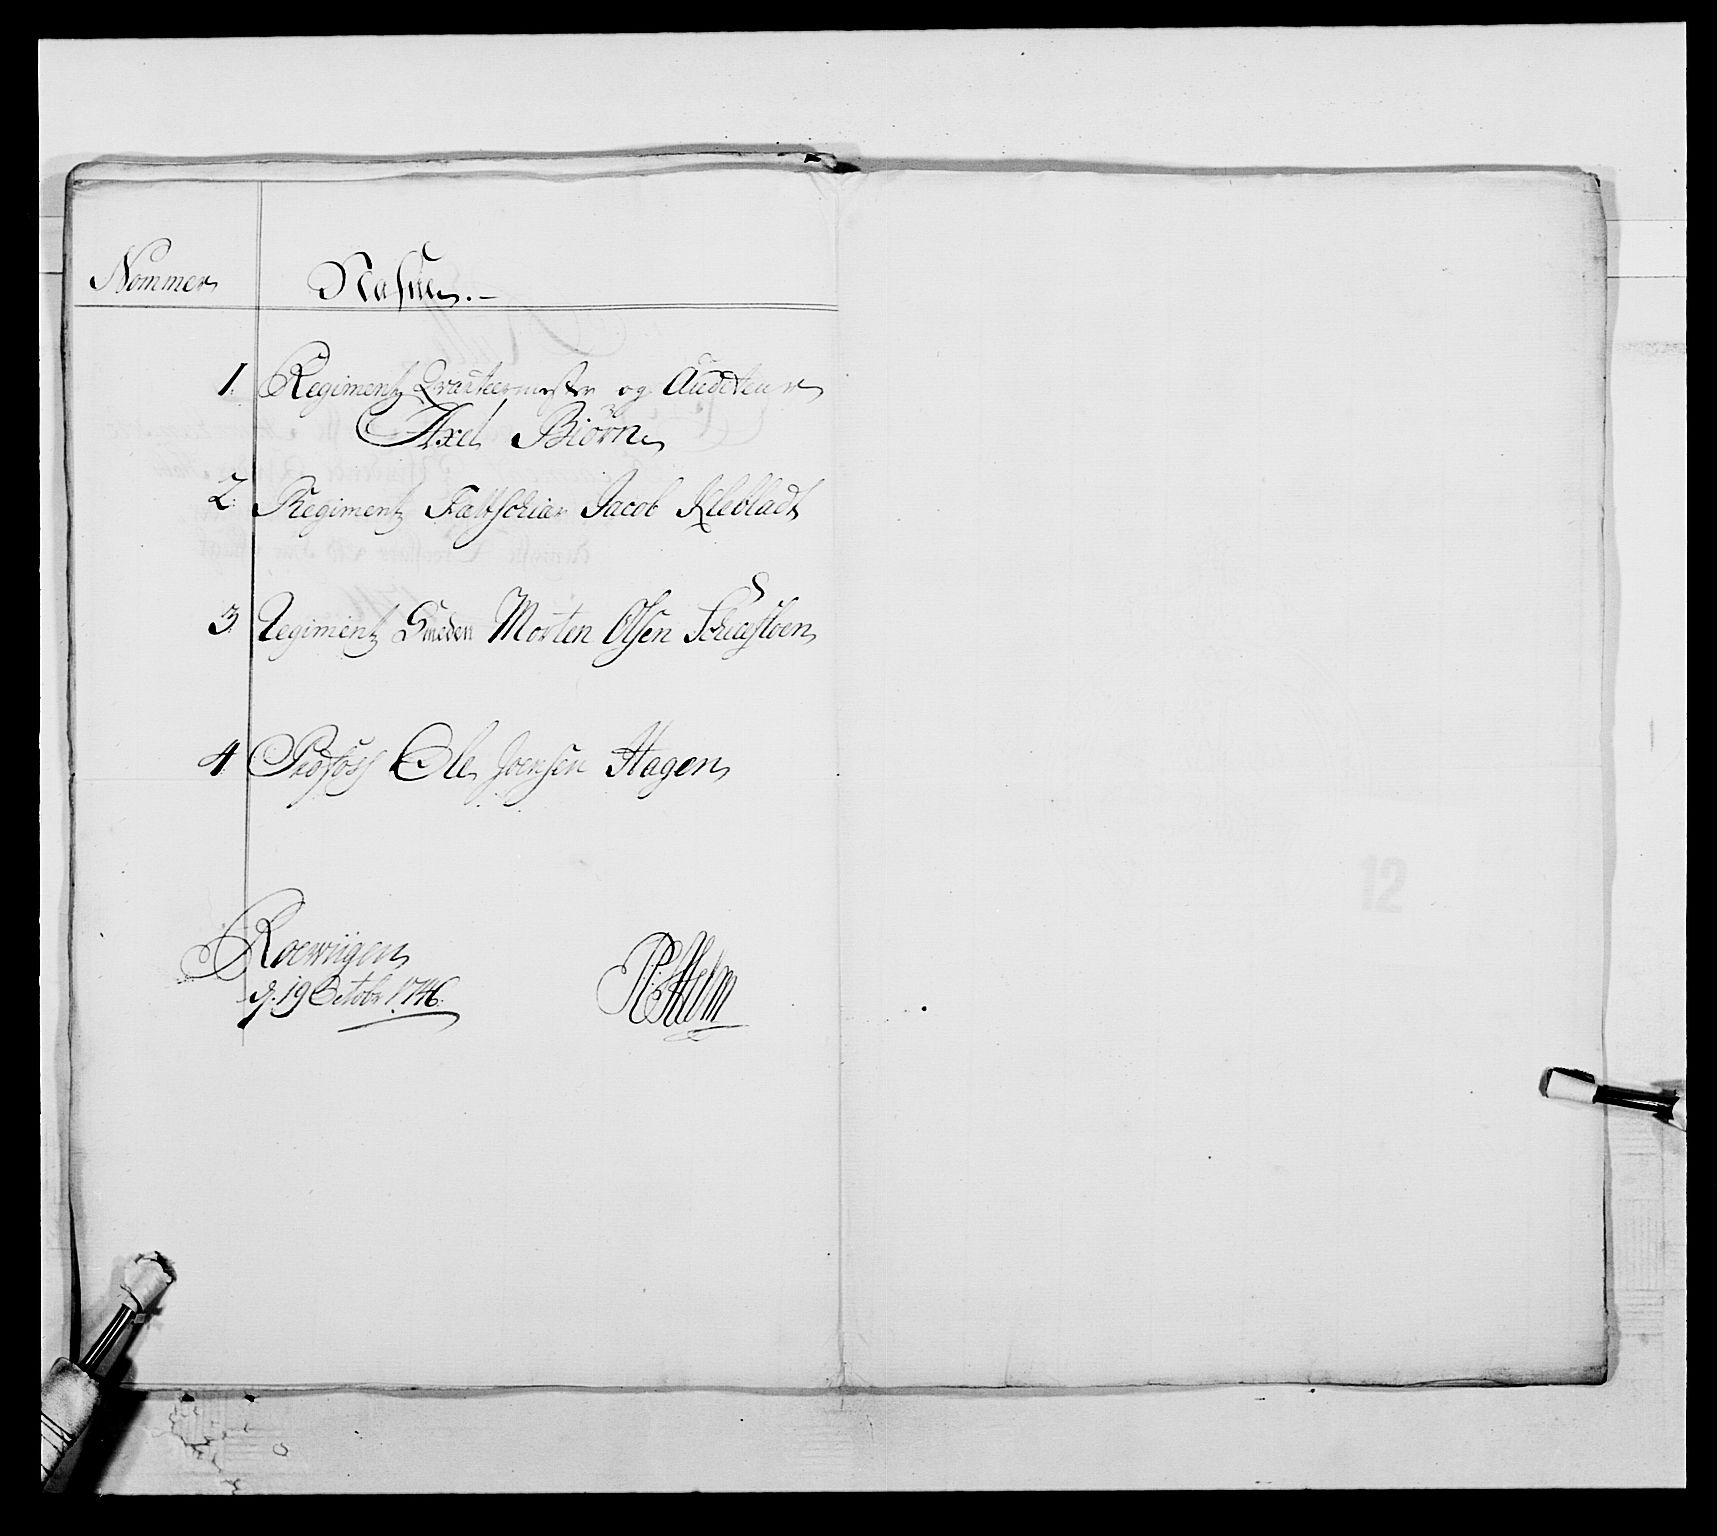 Nommer
Nafne.
1. Regiments Qvarteermester og Auditeur
Axel Biörn
2. Regiments Feltskier Jacob Klebladt
3. Regiments Smeden Morten Olsen
4. Profoss Ole Joensen Hagen
Roeswiigen
d. 19 Octobr 1746.
12